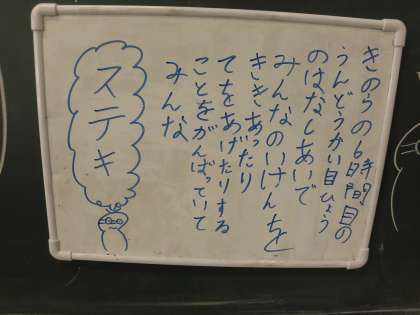 きのうの6時間目の
うんどうかい目ひょう
のはなしあいで
みんなのいけんを
ききあったり
てをあげたりする
ことをがんばっていて
みんな
ステキ